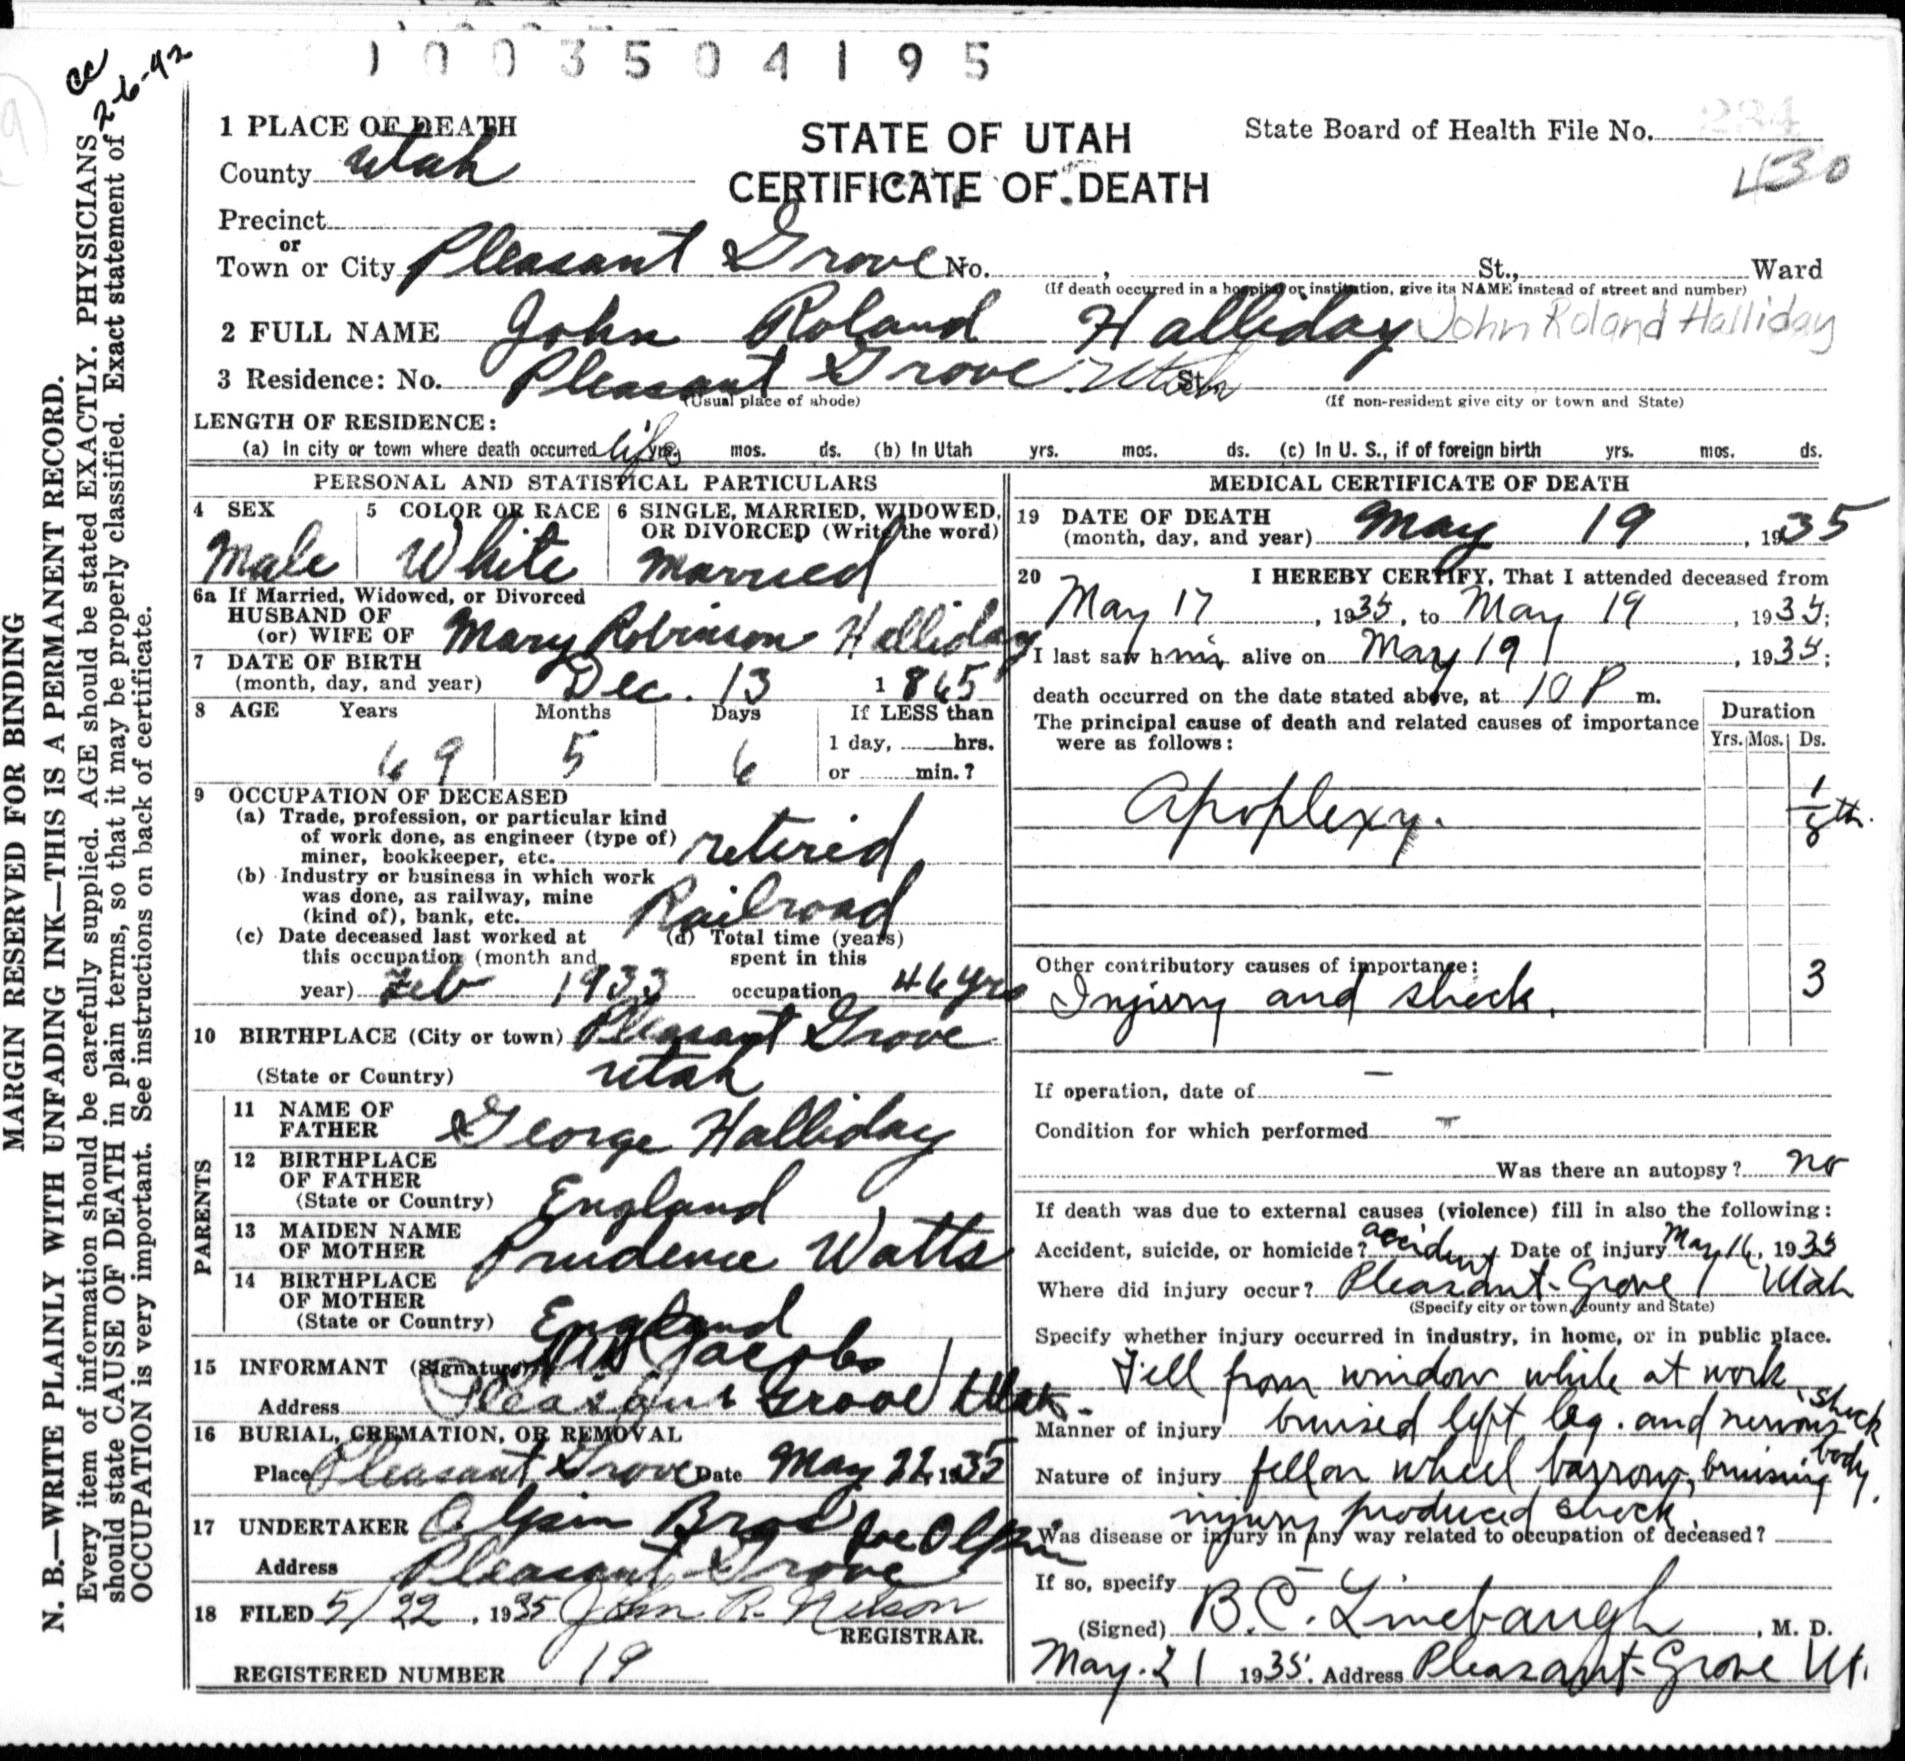 cc
2-6-42
1003504195
MARGIN RESERVED FOR BINDING
N. B.—WRITE PLAINLY WITH UNFADING INK—THIS IS A PERMANENT RECORD.
Every item of information should be carefully supplied. AGE should be stated EXACTLY. PHYSICIANS
should state CAUSE OF DEATH in plain terms, so that it may be properly classified. Exact statement of
OCCUPATION is very important. See instructions on back of certificate.
STATE OF UTAH
CERTIFICATE OF DEATH
State Board of Health File No. 234
430
1 PLACE OF DEATH
County Utah
Precinct
or
Town or City Pleasant Grove No. , St., Ward
(If death occurred in a hospital or institution, give its NAME instead of street and number)
2 FULL NAME John Roland Halliday John Roland Halliday
3 Residence: No. Pleasant Grove Utah St.
(Usual place of abode) (If non-resident give city or town and State)
LENGTH OF RESIDENCE:
(a) In city or town where death occurred life yrs. mos. ds. (b) In Utah yrs. mos. ds. (c) In U. S., if of foreign birth yrs. mos. ds.
PERSONAL AND STATISTICAL PARTICULARS
4 SEX 5 COLOR OR RACE 6 SINGLE, MARRIED, WIDOWED,
OR DIVORCED (Write the word)
Male White Married
6a If Married, Widowed, or Divorced
HUSBAND OF
(or) WIFE OF Mary Robinson Halliday
7 DATE OF BIRTH
(month, day, and year) Dec. 13 1865
8 AGE Years Months Days If LESS than
1 day, hrs.
69 5 6 or min.?
9 OCCUPATION OF DECEASED
(a) Trade, profession, or particular kind
of work done, as engineer (type of)
miner, bookkeeper, etc. retired
(b) Industry or business in which work
was done, as railway, mine
(kind of), bank, etc. Railroad
(c) Date deceased last worked at (d) Total time (years)
this occupation (month and spent in this
year) Feb 1933 occupation 46 yrs
10 BIRTHPLACE (City or town) Pleasant Grove
(State or Country) Utah
PARENTS
11 NAME OF
FATHER George Halliday
12 BIRTHPLACE
OF FATHER
(State or Country) England
13 MAIDEN NAME
OF MOTHER Prudence Watts
14 BIRTHPLACE
OF MOTHER
(State or Country) England
15 INFORMANT (Signature) Jacobs
Address Pleasant Grove Utah.
16 BURIAL, CREMATION, OR REMOVAL
Place Pleasant Grove Date May 22, 1935
17 UNDERTAKER Olpin Bros Joe Olpin
Address Pleasant Grove
18 FILED 5/22, 1935 John R. Nelson
REGISTRAR.
REGISTERED NUMBER 19
MEDICAL CERTIFICATE OF DEATH
19 DATE OF DEATH
(month, day, and year) May 19, 1935
20 I HEREBY CERTIFY, That I attended deceased from
May 17, 1935, to May 19, 1935;
I last saw him alive on May 19, 1935;
death occurred on the date stated above, at 10 P m.
The principal cause of death and related causes of importance
were as follows:
Duration
Yrs. Mos. Ds.
Apoplexy. 1/8 th.
Other contributory causes of importance:
Injury and shock. 3
If operation, date of —
Condition for which performed —
Was there an autopsy? no
If death was due to external causes (violence) fill in also the following:
Accident, suicide, or homicide? accident Date of injury May 16, 1935
Where did injury occur? Pleasant Grove Utah
(Specify city or town, county and State)
Specify whether injury occurred in industry, in home, or in public place.
Fell from window while at work
Manner of injury bruised left leg. and nervous shock
Nature of injury fell on wheel barrow, bruising body.
injury produced shock.
Was disease or injury in any way related to occupation of deceased?
If so, specify —
(Signed) B.C. Linebaugh, M. D.
May. 21 1935. Address Pleasant Grove Ut.